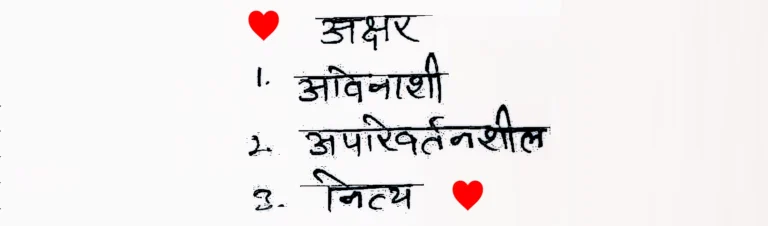 अक्षर
1. अविनाशी
2. अपरिवर्तनशील
3. नित्य